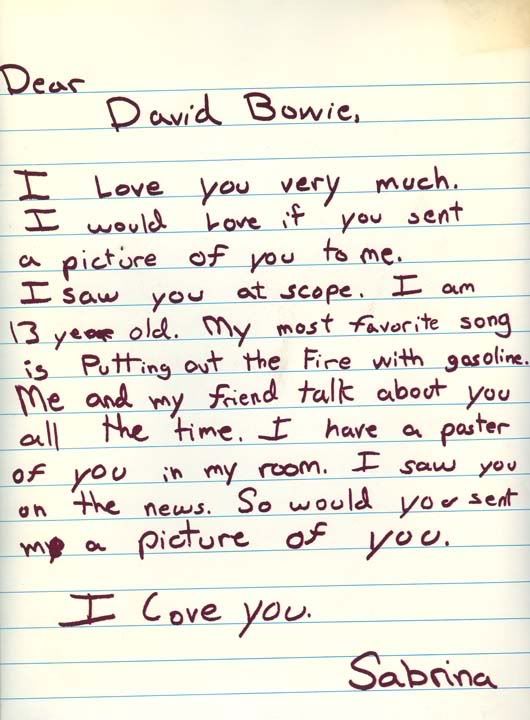 Dear
David Bowie,
I Love you very much.
I would Love if you sent
a picture of you to me.
I saw you at scope. I am
13 year old. My most favorite song
is Putting out the Fire with gasoline.
Me and my friend talk about you
all the time. I have a poster
of you in my room. I saw you
on the news. So would you sent
me a picture of you.
I Love you.
Sabrina